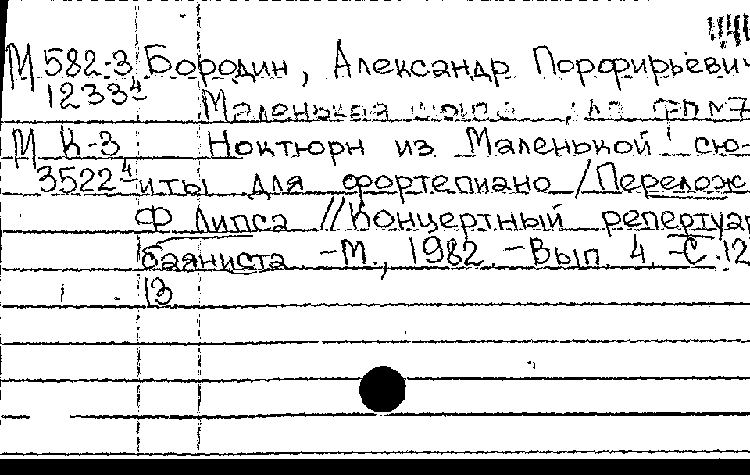 М 582-3 Бородин, Александр Порфирьевич
1233⁴ Маленькая
М К-3 Ноктюрн из Маленькой сю-
3522⁴ иты для фортепиано / Перелож
Ф Липса // Концертный репертуар
баяниста. - М., 1982. - Вып. 4. - С. 12
13